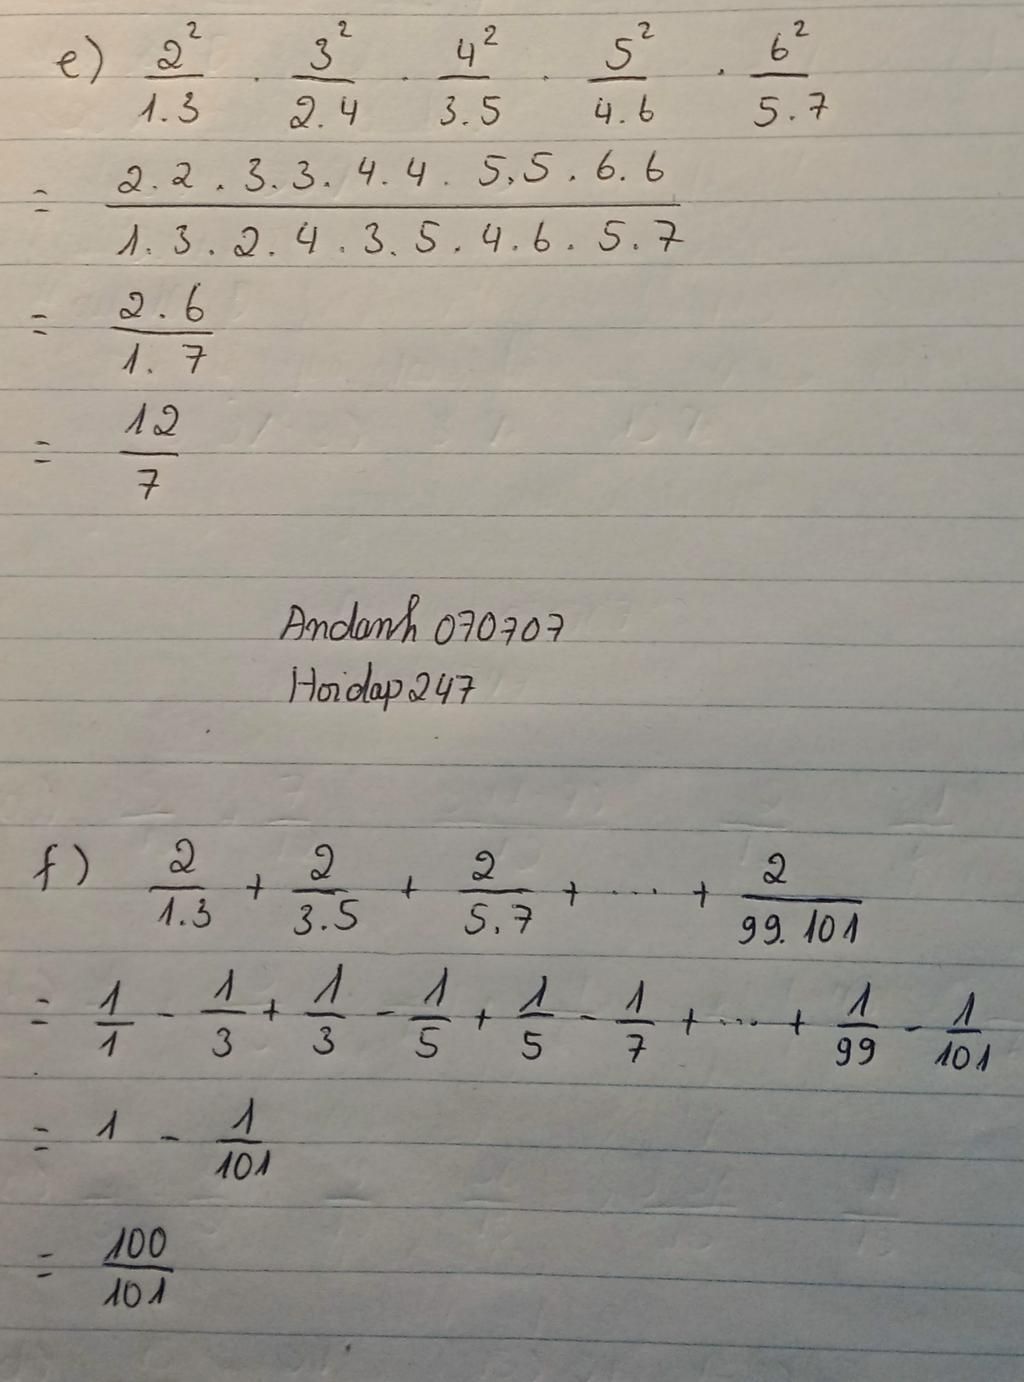 e) 2²/1.3 . 3²/2.4 . 4²/3.5 . 5²/4.6 . 6²/5.7
= 2.2 . 3.3. 4.4. 5.5. 6.6 / 1.3.2.4.3.5.4.6.5.7
= 2.6 / 1.7
= 12/7
Andanh 070707
Hoidap247
f) 2/1.3 + 2/3.5 + 2/5.7 + .... + 2/99.101
= 1/1 - 1/3 + 1/3 - 1/5 + 1/5 - 1/7 + ... + 1/99 - 1/101
= 1 - 1/101
= 100/101